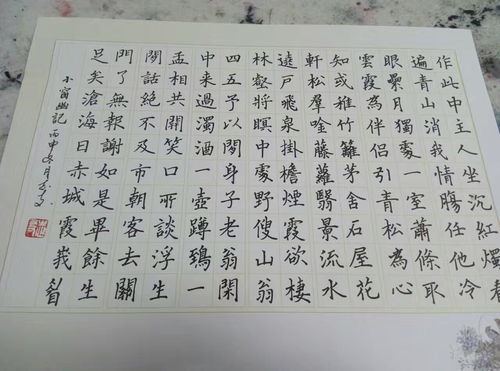 作此中主人坐沉紅燭看
遍青山消我情腸任他冷
眼纍月獨處一室蕭條取
雲霞為伴侶引青松為心
知或稚竹籬茅舍石屋花
軒松羣唫藤蘿翳景流水
遶戶飛泉掛檐煙霞欲棲
林壑將暝中處野傁山翁
四五予以閒身子老翁閑
中来過濁酒一壺蹲鴟一
盂相共開笑口所談浮生
閒話絕不及市朝客去關
門了無報謝如是畢餘生
足矣滄海日赤城霞峩眉
小窗幽記 丙申